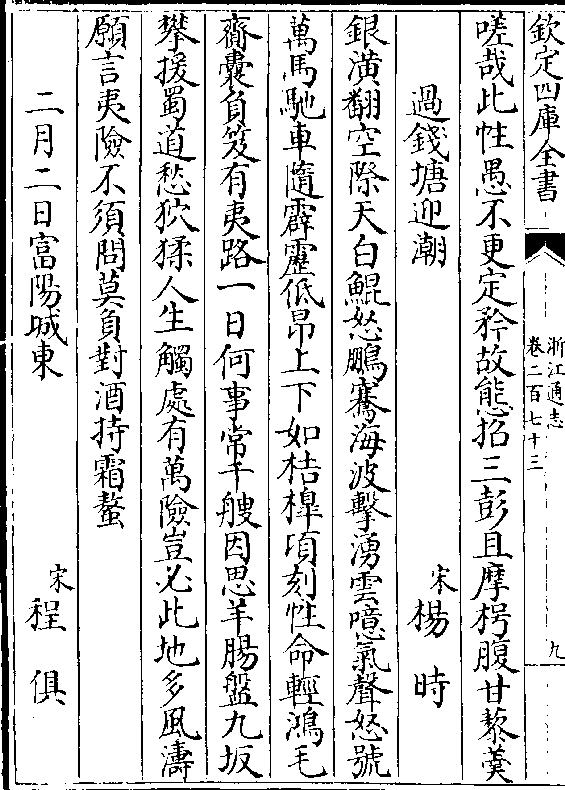 欽定四庫全書
浙江通志
卷二百七十三
九
嗟哉此性愚不更定矜故態招三彭且摩枵腹甘藜羮
過錢塘迎潮
宋楊時
銀潢翻空際天白鯤怒鵬騫海波擊湧雲噫氣聲怒號
萬馬馳車隨霹靂低昂上下如桔槹頃刻性命輕鴻毛
齎囊負笈有夷路一日何事常千艘因思羊腸盤九坂
攀援蜀道愁狖猱人生觸處有萬險豈必此地多風濤
願言夷險不須問莫負對酒持霜螯
二月二日富陽城東
宋程俱